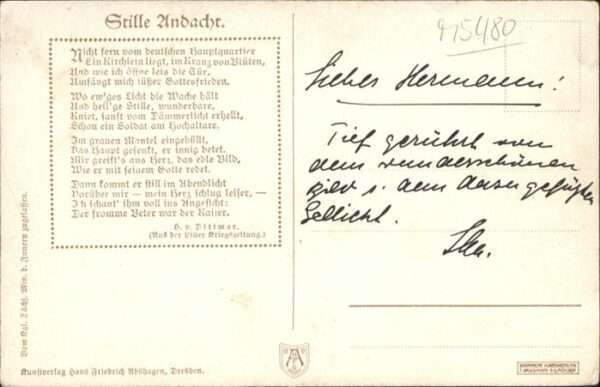 Stille Andacht.
Nicht fern vom deutschen Hauptquartier
Ein Kirchlein liegt, im Kranz von Blüten,
Und wie ich öffne leis die Tür,
Umfängt mich süßer Gottesfrieden.
Wo ew'ges Licht die Wache hält
Und heil'ge Stille, wunderbare,
Kniet, sanft vom Dämmerlicht erhellt,
Schon ein Soldat am Hochaltare.
Im grauen Mantel eingehüllt,
Das Haupt gesenkt, er innig betet.
Mir greift's ans Herz, das edle Bild,
Wie er mit seinem Gotte redet.
Dann kommt er still im Abendlicht
Vorüber mir — mein Herz schlug leiser, —
Ich schaut' ihm voll ins Angesicht:
Der fromme Beter war der Kaiser.
H. v. Dittmar.
(Aus der Liller Kriegszeitung.)
Vom Kgl. Sächs. Min. d. Innern zugelassen.
Kunstverlag Hans Friedrich Abshagen, Dresden.
Lieber Hermann!
Tief gerührt von
dem wunderschönen
Bild u. dem dazu gefügten
Gedicht.